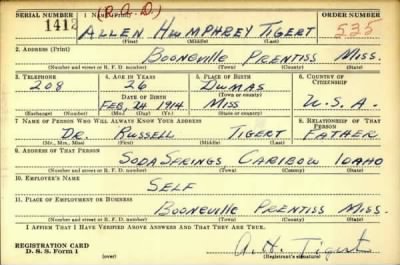 (R.O.D.)
SERIAL NUMBER 1. NAME (Print) ORDER NUMBER
1412 ALLEN HUMPHREY TIGERT 535
(First) (Middle) (Last)
2. ADDRESS (Print)
BOONEVILLE PRENTISS MISS.
(Number and street or R. F. D. number) (Town) (County) (State)
3. TELEPHONE 4. AGE IN YEARS 5. PLACE OF BIRTH 6. COUNTRY OF CITIZENSHIP
208 26 DUMAS
DATE OF BIRTH (Town or county)
FEB, 24 1914 MISS U.S.A.
(Exchange) (Number) (Mo.) (Day) (Yr.) (State or country)
7. NAME OF PERSON WHO WILL ALWAYS KNOW YOUR ADDRESS 8. RELATIONSHIP OF THAT PERSON
DR. RUSSELL TIGERT FATHER
(Mr., Mrs., Miss) (First) (Middle) (Last)
9. ADDRESS OF THAT PERSON
SODA SPRINGS CARIBOW IDAHO
(Number and street or R. F. D. number) (Town) (County) (State)
10. EMPLOYER'S NAME
SELF
11. PLACE OF EMPLOYMENT OR BUSINESS
BOONEVILLE PRENTISS MISS.
(Number and street or R. F. D. number) (Town) (County) (State)
I AFFIRM THAT I HAVE VERIFIED ABOVE ANSWERS AND THAT THEY ARE TRUE.
REGISTRATION CARD
D. S. S. Form 1 (over) A.H. Tigert
(Registrant's signature)